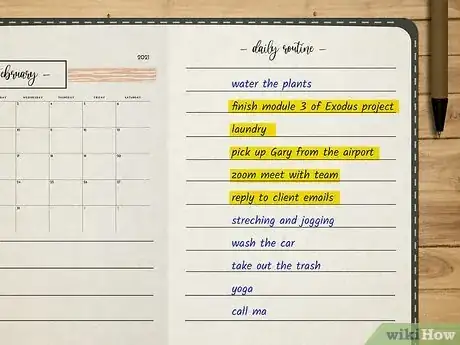 ebruary –
2021
WEDNESDAY THURSDAY FRIDAY SATURDAY
– daily routine –
water the plants
finish module 3 of Exodus project
laundry
pick up Gary from the airport
zoom meet with team
reply to client emails
streching and jogging
wash the car
take out the trash
yoga
call ma
wikiHow